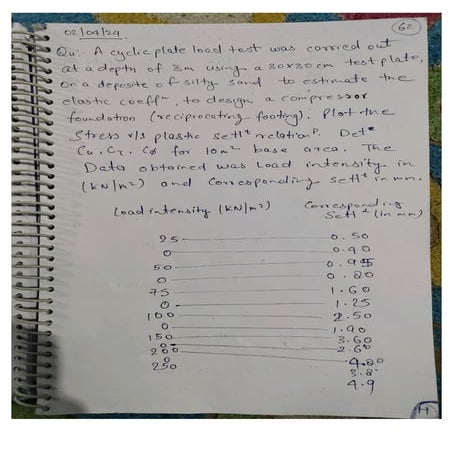 02/04/24
62
Qu:- A cyclic plate load test was carried out
at a depth of 3m using a 30x30 cm test plate,
on a deposite of silty sand to estimate the
elastic coeffⁿ, to design a compressor
foundation (reciprocating footing). Plot the
Stress v/s plastic settᵗ relatioⁿ. Detᵉ
Cu, Cτ, Cφ for 10m² base area. The
Data obtained was Load intensity in
(kN/m²) and corresponding settᵗ in mm.
Load intensity (kN/m²) Corresponding
Settᵗ (in mm)
25 0.50
0 0.40
50 0.95
0 0.80
75 1.60
0 1.25
100 2.50
0 1.90
150 3.60
0 2.60
200 4.20
0 3.8
250 4.9